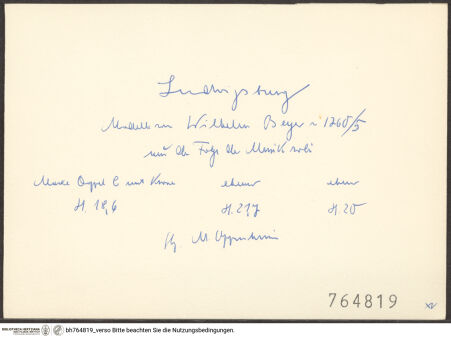 Ludwigsburg
Modelle von Wilhelm Beyer 1760/5
aus der Folge der Musiksoli
Marke Doppel C mit Krone ebenso ebenso
H. 18,6 H. 21,7 H. 20
M. Oppenheim
764819
BIBLIOTHECA HERTZIANA bh764819_verso Bitte beachten Sie die Nutzungsbedingungen.